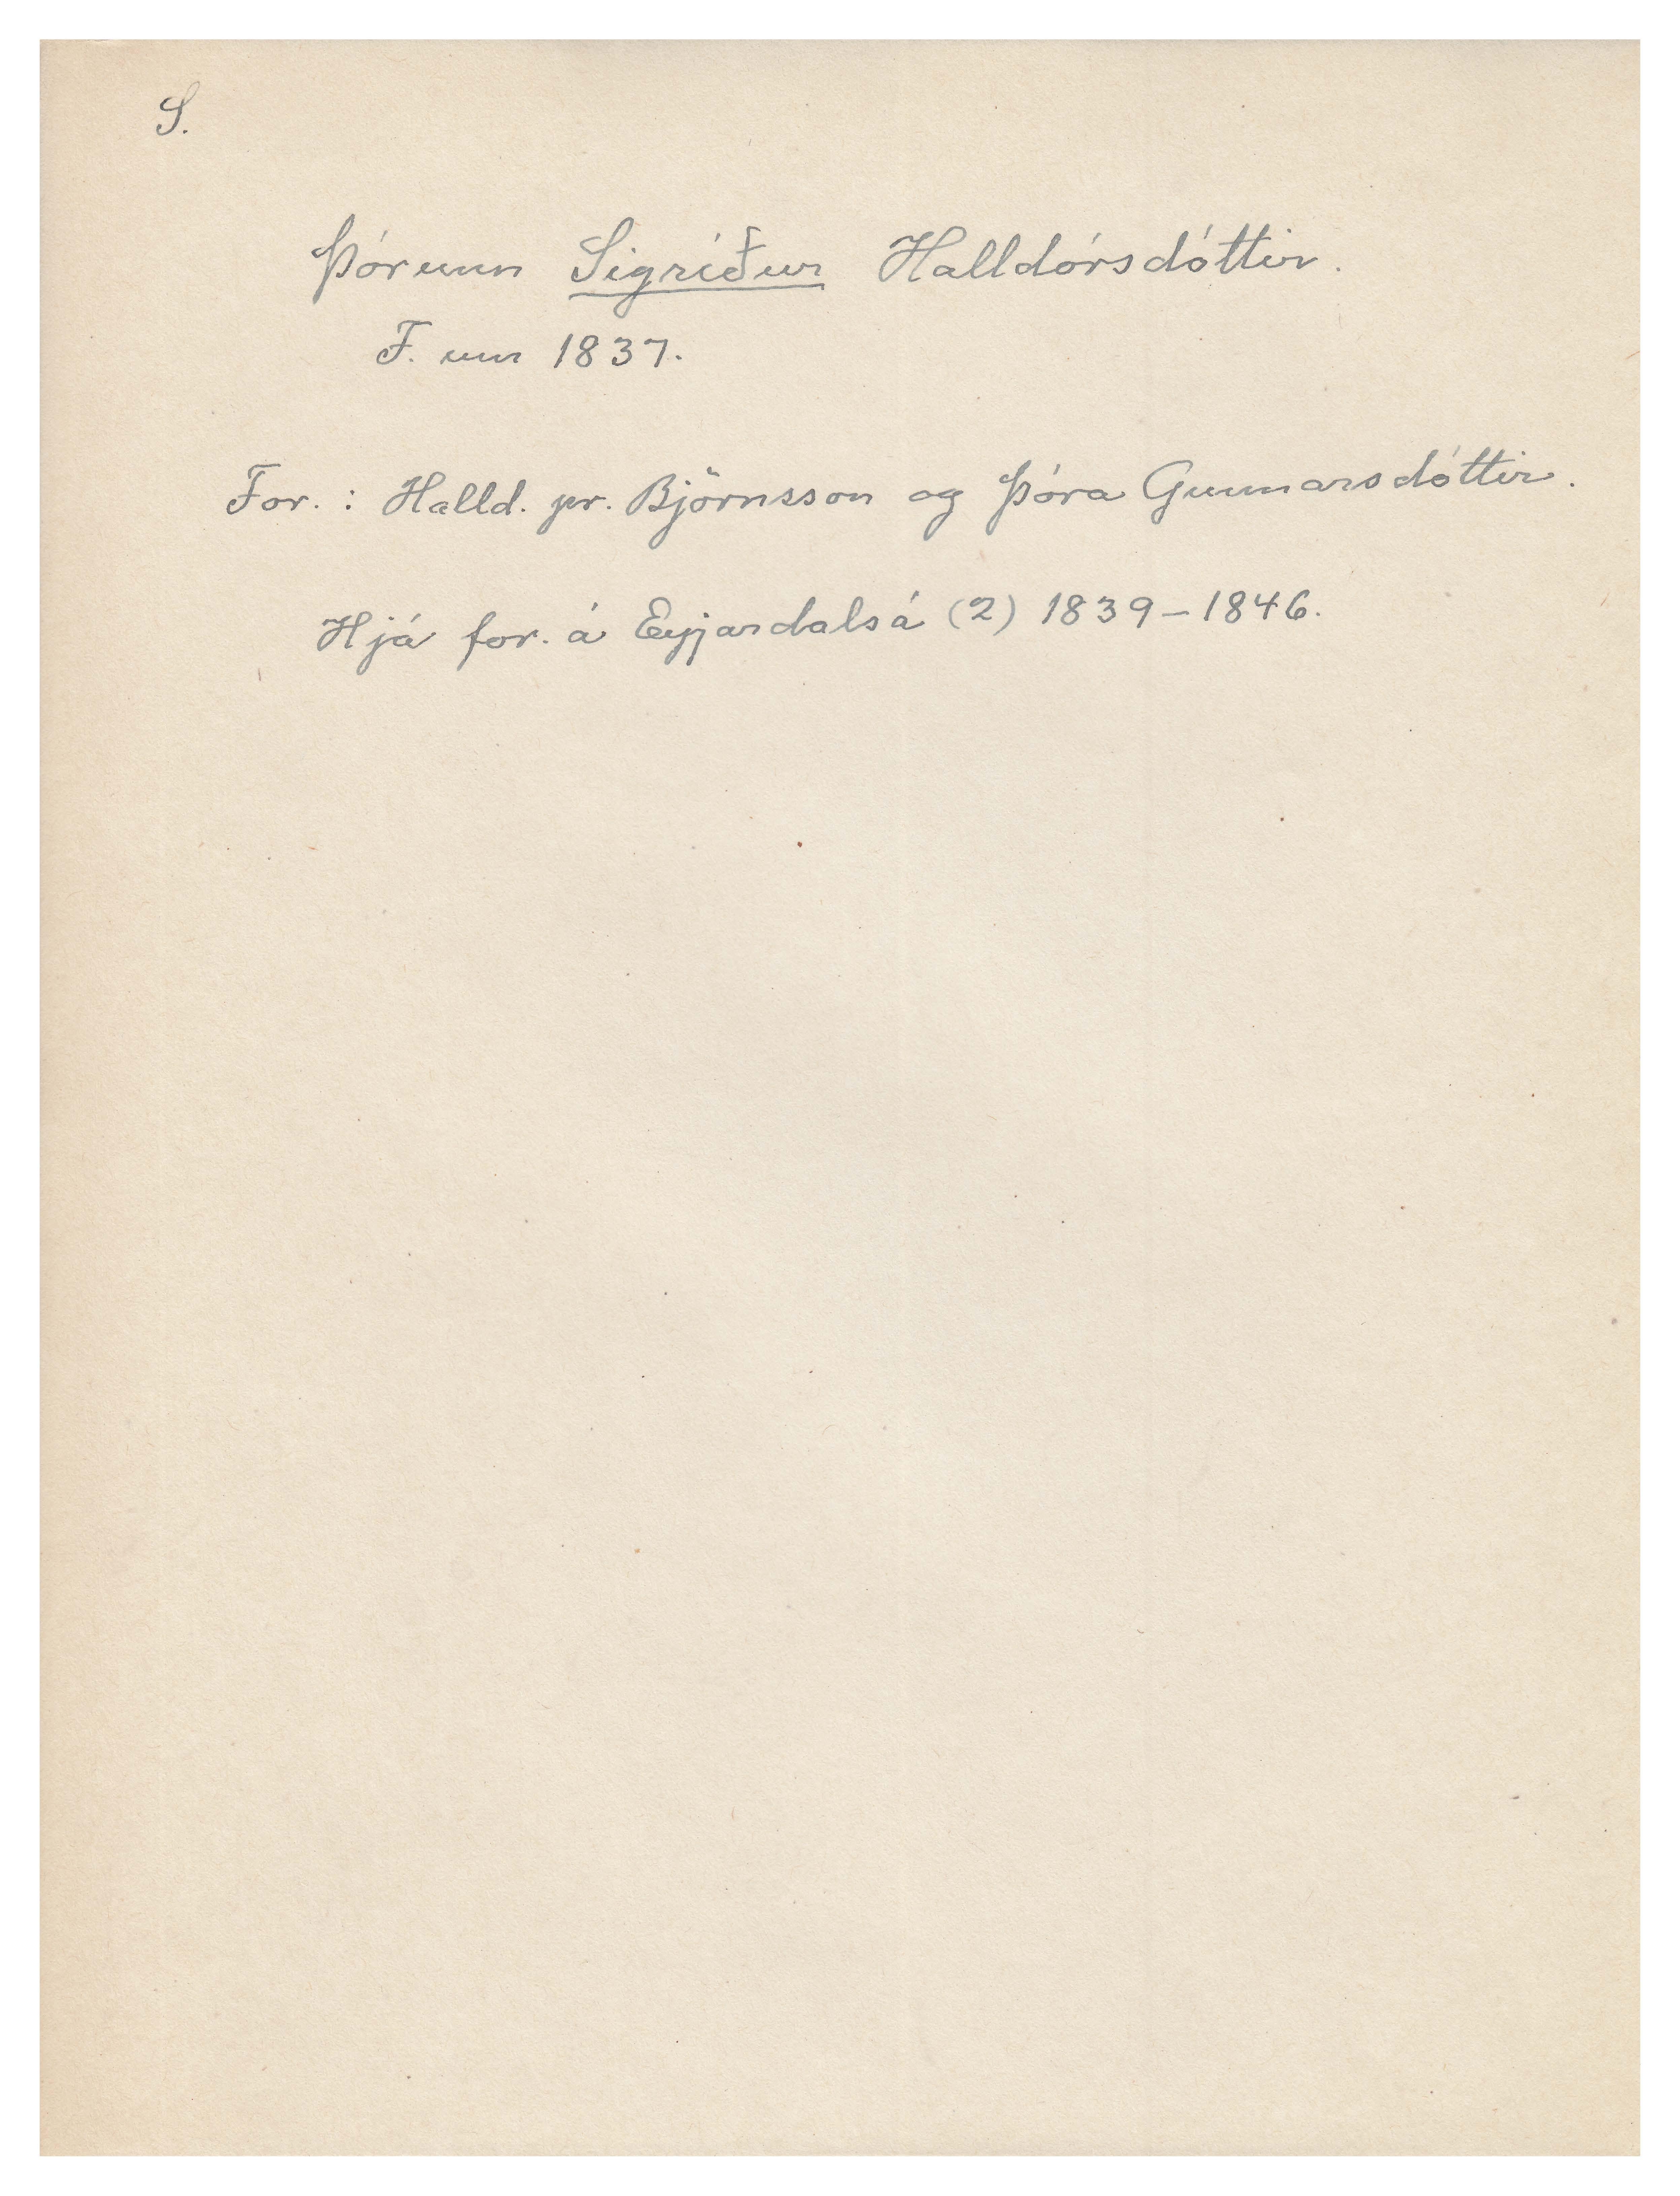 S.
Þórunn Sigríður Halldórsdóttir.
F. um 1837.
For. : Halld. pr. Björnsson og Þóra Gunnarsdóttir.
Hjá for. á Eyjardalsá (2) 1839-1846.